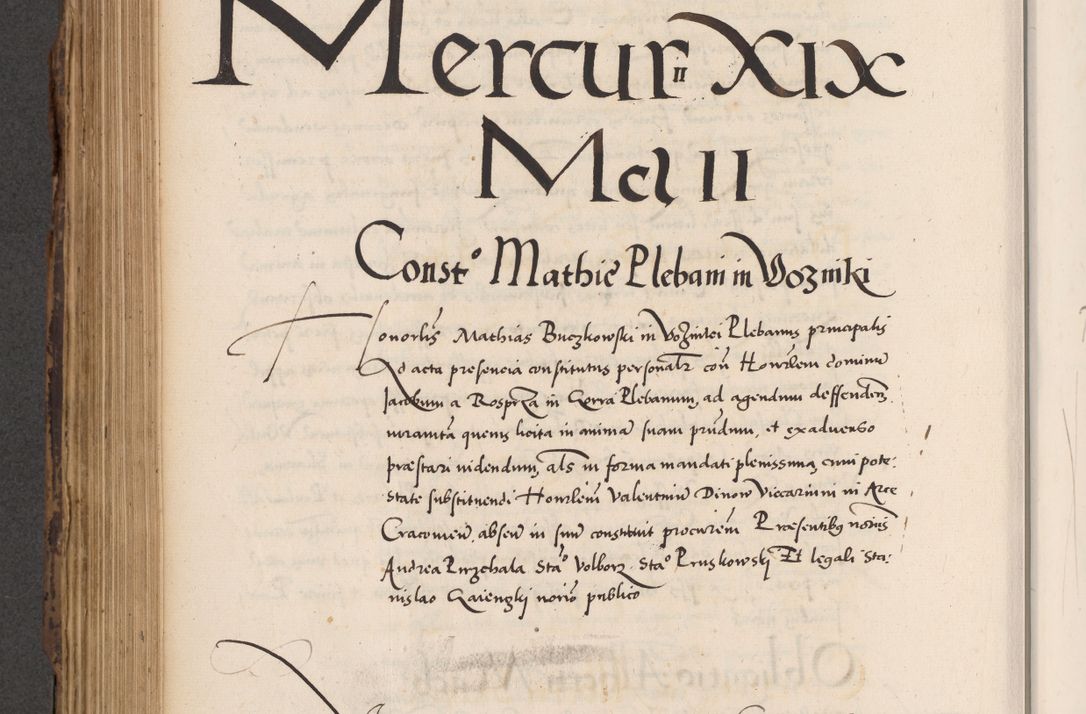 Mercurii XIX
McLII
Const° Mathie Plebani in Vozniki
Honorlis Mathias Buczkowski in Voznikei Plebanus principalis
Ad acta presencia constitutus personalr con Honorlem dominum
Jacobum a Rosprza in Gorra Plebanum, ad agendum deffendem
iuramta quevis licita in animam suam prestandum, et exadverso
præstari videndum, als in forma mandati plenissima, cum pote-
state substituendi Honorlem Valentinum Dinow Viccarium in Arce
Cracovien, absen in suum constituit procurem Præsentibus nobis
Andrea Przechala Sta° Volborz, Sta° Pruskowski Et legali Sta-
nislao Gaiengki norio publico